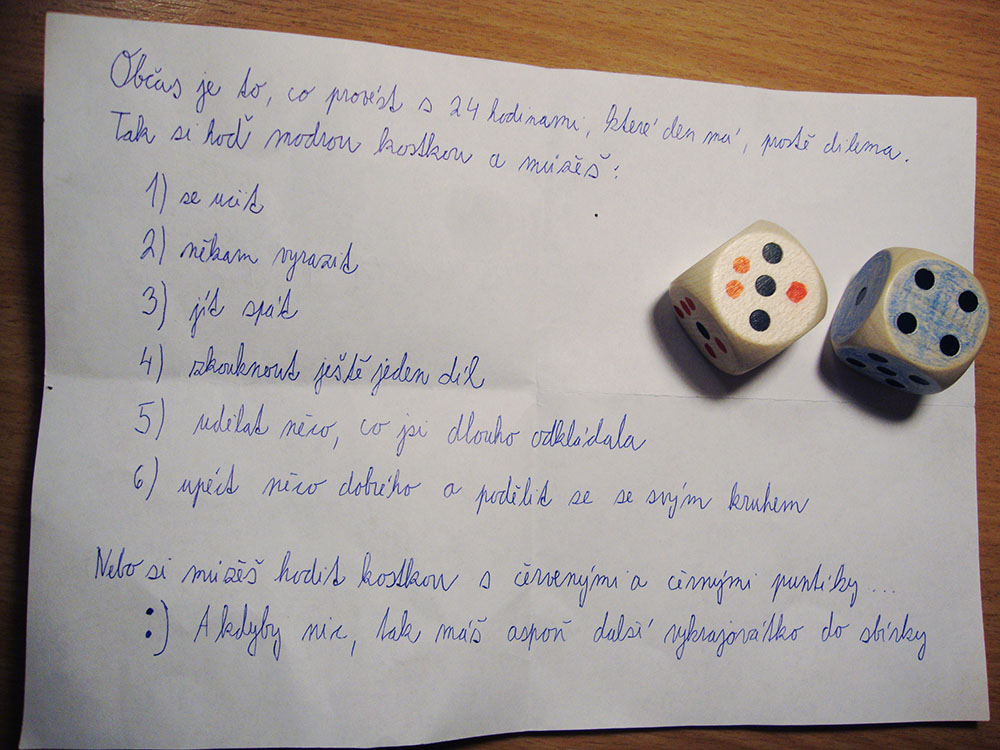 Občas je to, co provést s 24 hodinami, které den má, prostě dilema.
Tak si hoď modrou kostkou a můžěš:
1) se učit
2) někam vyrazit
3) jít spát
4) zkouknout ještě jeden díl
5) udělat něco, co jsi dlouho odkládala
6) upéct něco dobrého a podělit se se svým kruhem
Nebo si můžěš hodit kostkou s červenými a černými puntíky....
:) A kdyby nic, tak máš aspoň další vykrajovátko do sbírky